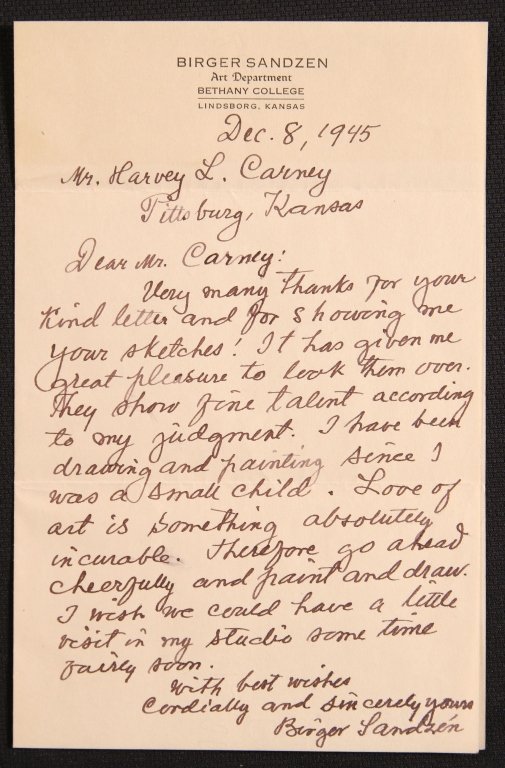 BIRGER SANDZEN
Art Department
BETHANY COLLEGE
LINDSBORG, KANSAS
Dec. 8, 1945
Mr. Harvey L. Carney
Pittsburg, Kansas
Dear Mr. Carney!
Very many thanks for your
kind letter and for showing me
your sketches! It has given me
great pleasure to look them over.
They show fine talent according
to my judgment. I have been
drawing and painting since I
was a small child. Love of
art is something absolutely
incurable. Therefore go ahead
cheerfully and paint and draw.
I wish we could have a little
visit in my studio some time
fairly soon.
With best wishes
Cordially and sincerely yours
Birger Sandzén